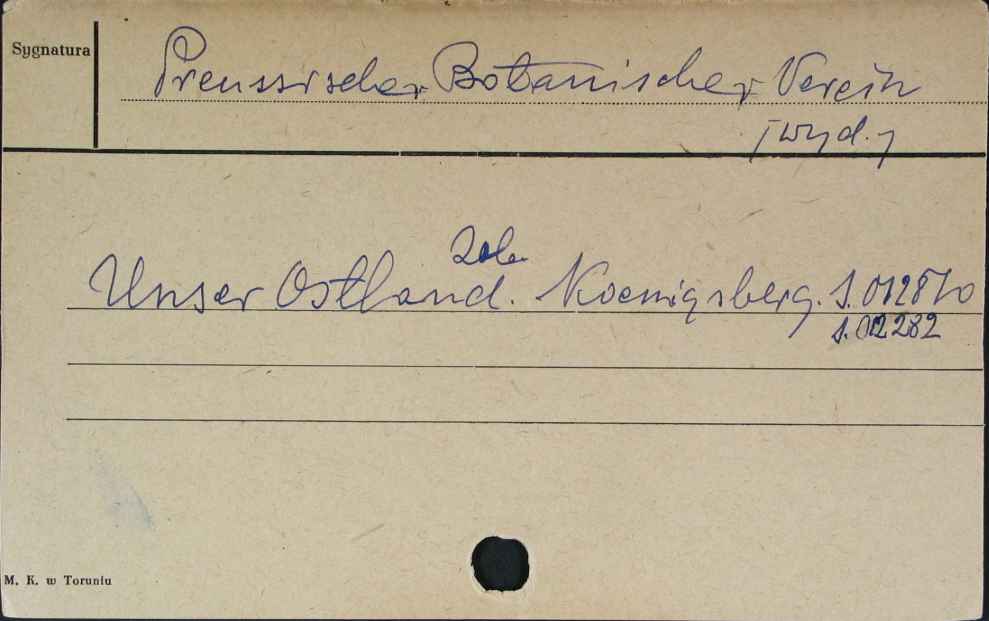 Sygnatura
Preussischer Botanischer Verein
[wyd.]
Zob.
Unser Ostland. Koenigsberg. S.012870
S.012282
M. K. w Toruniu